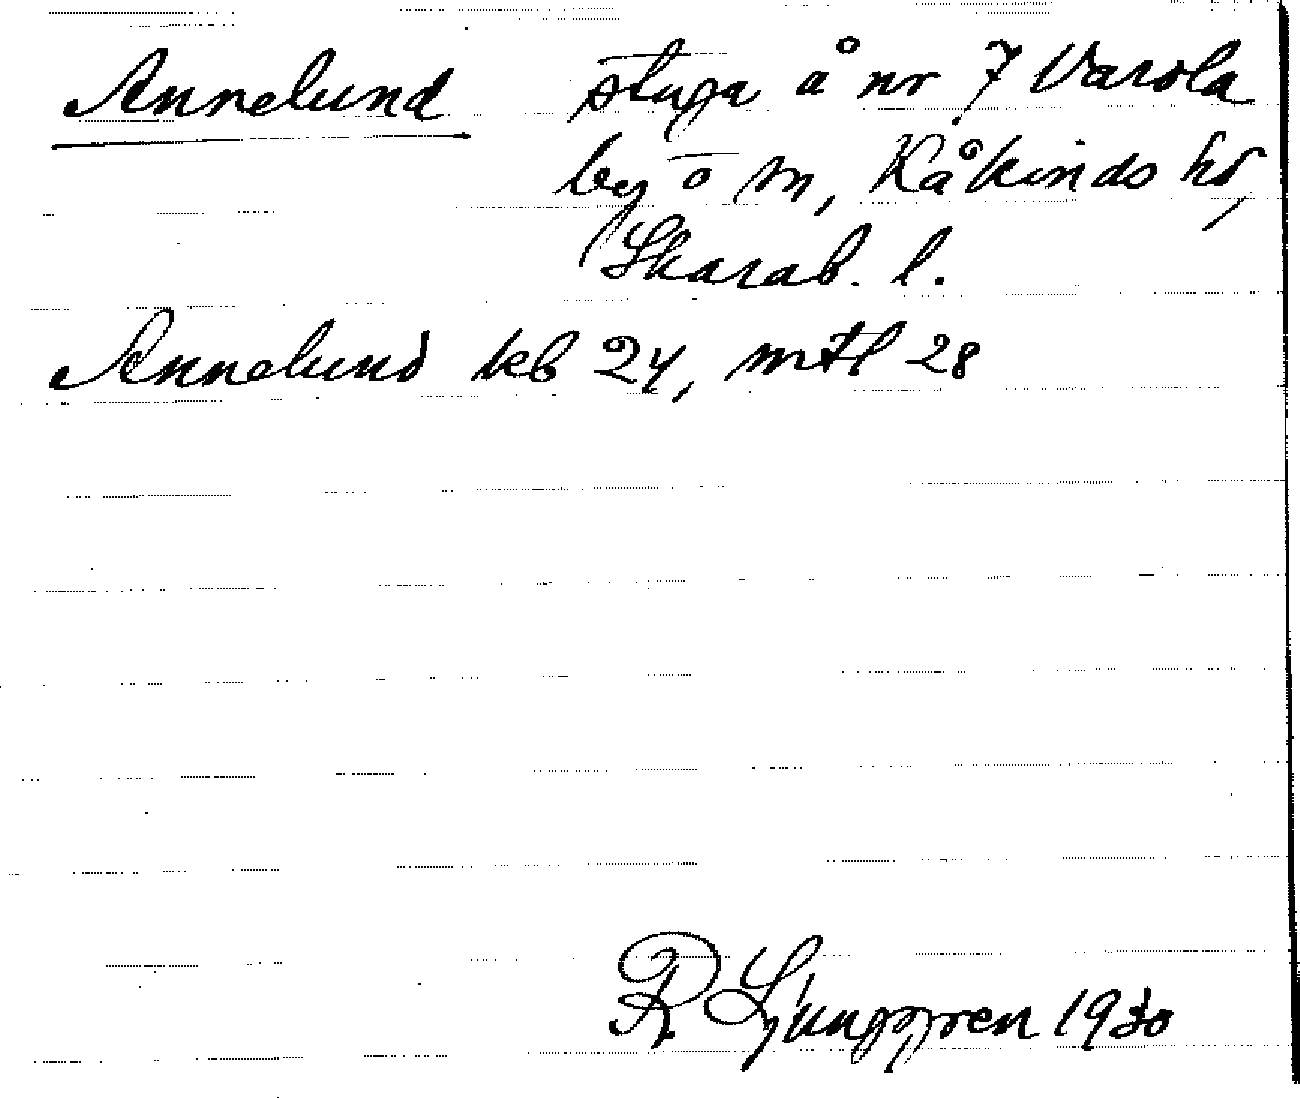 Annelund stuga å nr 7 Varola
by o m, Kåkinds hd,
Skarab. l.
Annelund kb 24, mtl 28
R Ljunggren 1930